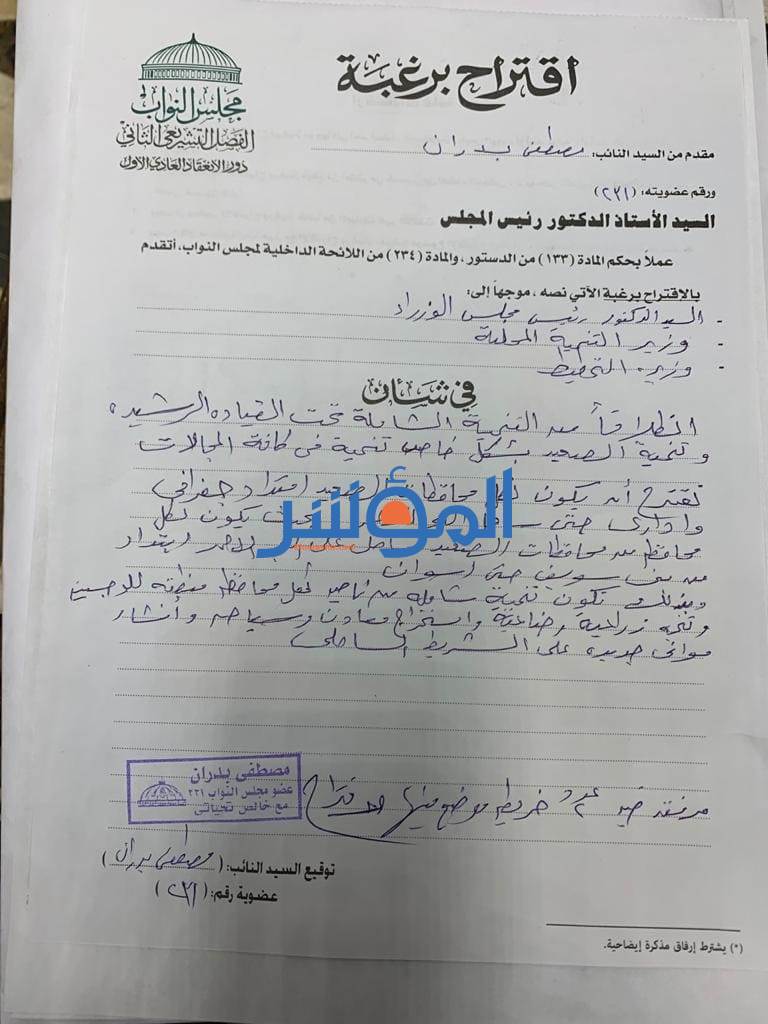 مجلس النواب
الفصل التشريعي الثاني
دور الانعقاد العادي الأول
اقتراح برغبة
مقدم من السيد النائب: مصطفى بدران
ورقم عضويته: (٢٣١)
السيد الأستاذ الدكتور رئيس المجلس
عملاً بحكم المادة (١٣٣) من الدستور، والمادة (٢٣٤) من اللائحة الداخلية لمجلس النواب، أتقدم
بالاقتراح برغبة الآتي نصه، موجهاً إلى:
- السيد الدكتور رئيس مجلس الوزراء
- وزير التنمية المحلية
- وزيرة التخطيط
في شأن
انطلاقاً من التنمية الشاملة تحت القيادة الرشيدة
وتنمية الصعيد بشكل خاص تنمية فى كافة المجالات
نقترح أن يكون لكل محافظات الصعيد امتداد جغرافي
وادارى حتى ساحل البحر بحيث يكون لكل
محافظة من محافظات الصعيد ساحل على البحر الاحمر ابتداء
من بنى سويف حتى اسوان
وبذلك تكون تنمية شاملة لكل محافظة منطقة
زراعية وصناعية واستخراج معادن وسياحه وأنشاء
موانى جديده على الشريط الساحلى
المؤشر
مرفق عدد ٢ خريطه موضح فيها الاقتراح
مصطفى بدران
عضو مجلس النواب ٢٣١
مع خالص تحياتى
توقيع السيد النائب: (مصطفى بدران)
عضوية رقم: (٢٣١)
(*) يشترط إرفاق مذكرة إيضاحية.